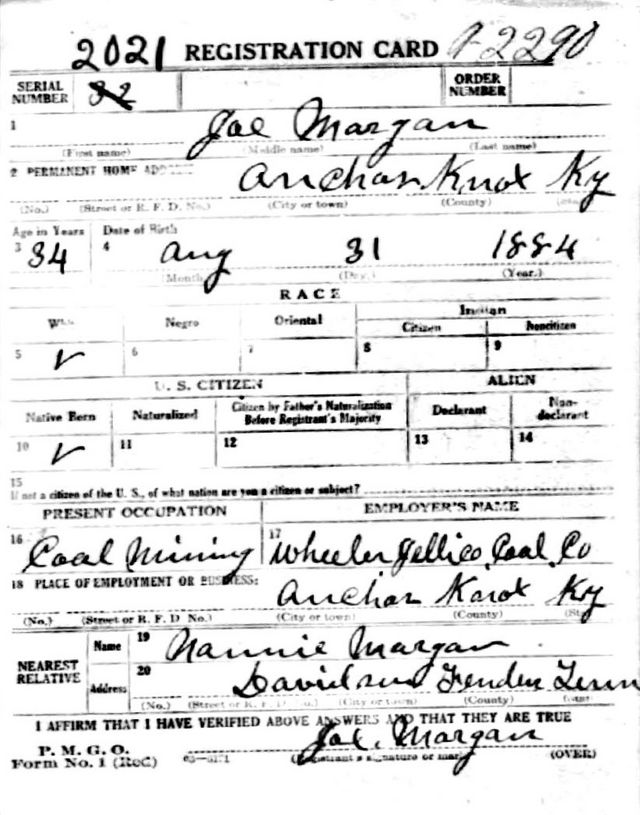 2021 REGISTRATION CARD A-2290
SERIAL NUMBER 32 ORDER NUMBER
1 Joe Morgan
(First name) (Middle name) (Last name)
2 PERMANENT HOME ADDRESS Anchor Knox Ky
(No.) (Street or R. F. D. No.) (City or town) (County) (State)
Age in Years Date of Birth
3 34 4 Aug 31 1884
(Month.) (Day.) (Year.)
RACE
White Negro Oriental Indian
Citizen Noncitizen
5 ✓ 6 7 8 9
U. S. CITIZEN ALIEN
Native Born Naturalized Citizen by Father's Naturalization Before Registrant's Majority Declarant Non-declarant
10 ✓ 11 12 13 14
15
If not a citizen of the U. S., of what nation are you a citizen or subject?
PRESENT OCCUPATION EMPLOYER'S NAME
16 Coal Mining 17 Wheeler Jellico Coal Co
18 PLACE OF EMPLOYMENT OR BUSINESS:
Anchor Knox Ky
(No.) (Street or R. F. D. No.) (City or town) (County) (State)
NEAREST RELATIVE Name 19 Nannie Morgan
Address 20 Davidson Tenn
(No.) (Street or R. F. D. No.) (City or town) (County) (State)
I AFFIRM THAT I HAVE VERIFIED ABOVE ANSWERS AND THAT THEY ARE TRUE
P. M. G. O.
Form No. 1 (Red) 03—6171 Joe. Morgan
(Registrant's signature or mark) (OVER)